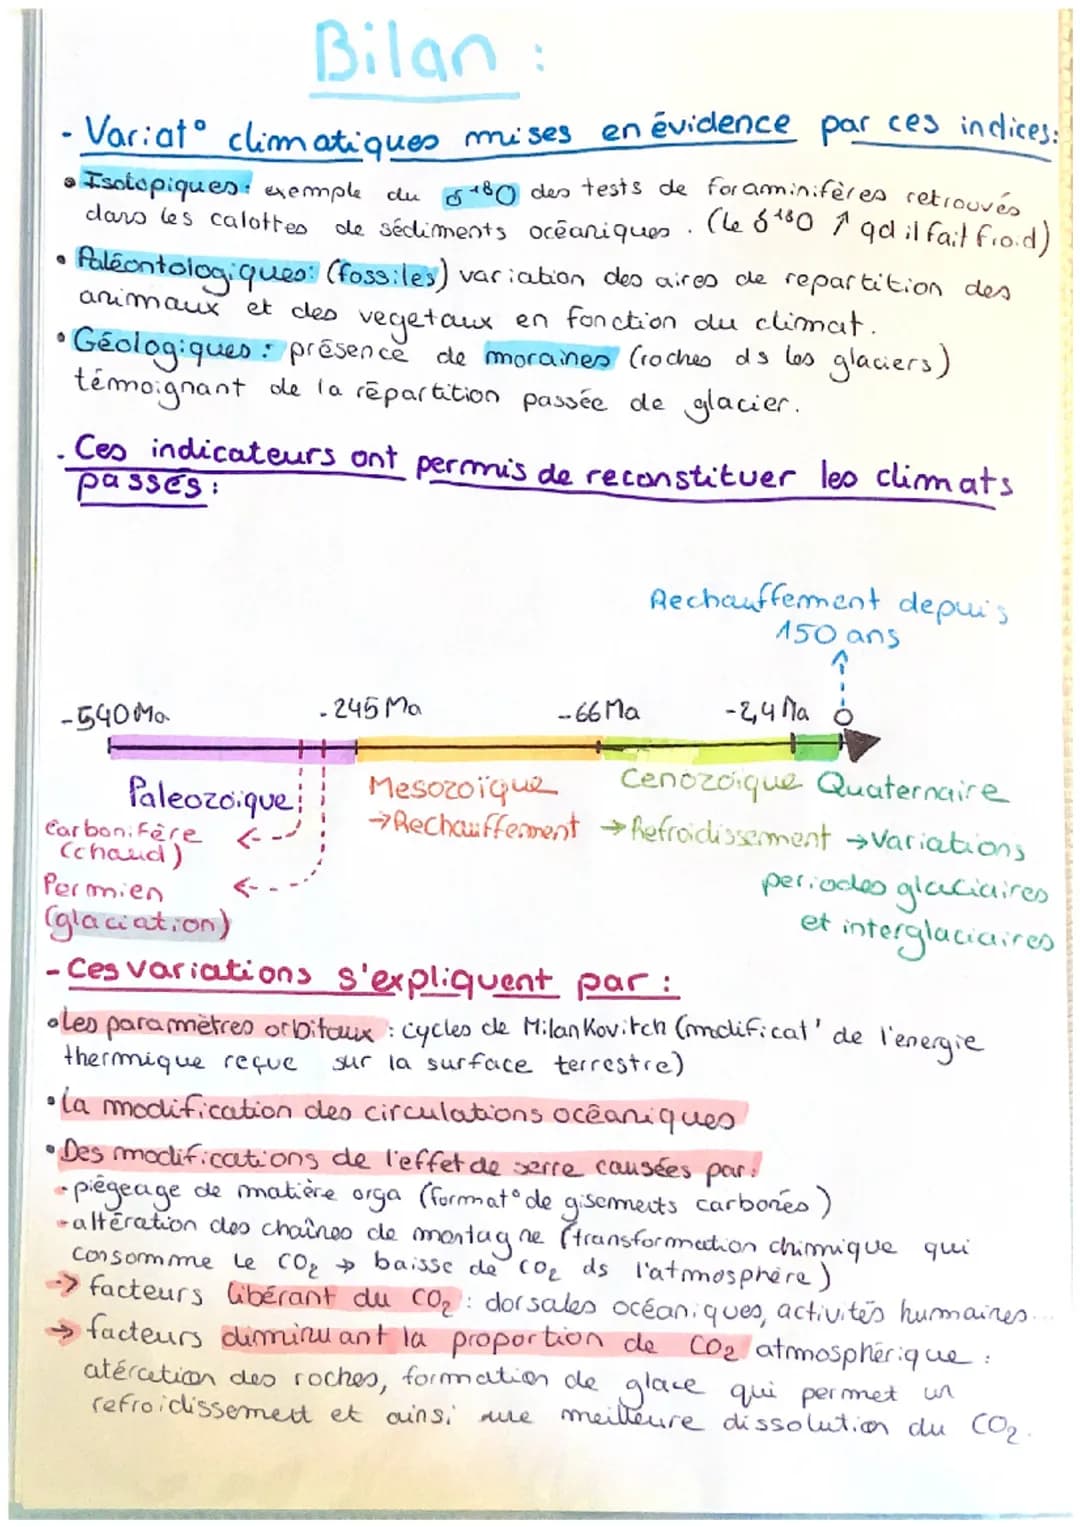 Bilan :
- Variat° climatiques mises en évidence par ces indices:
• Isotopiques: exemple du δ¹⁸O des tests de foraminifères retrouvés
dans les calottes de sédiments océaniques. (le δ¹⁸O ↑ qd il fait froid)
• Paléontologiques: (fossiles) variation des aires de repartition des
animaux et des vegetaux en fonction du climat.
• Géologiques: présence de moraines (roches ds les glaciers)
témoignant de la répartition passée de glacier.
- Ces indicateurs ont permis de reconstituer les climats
passés:
Rechauffement depuis
150 ans
-540 Ma -245 Ma -66 Ma -2,4 Ma 0
Paleozoique Mesozoïque Cenozoique Quaternaire
→Rechauffement →Refroidissement →Variations
periodes glaciaires
et interglaciaires
Carbonifère
(chaud)
Permien
(glaciation)
- Ces variations s'expliquent par :
• Les paramètres orbitaux : cycles de Milankovitch (modificat° de l'energie
thermique reçue sur la surface terrestre)
• La modification des circulations océaniques
• Des modifications de l'effet de serre causées par:
- piégeage de matière orga (format° de gisements carbonés)
- altération des chaînes de montagne (transformation chimique qui
consomme le CO₂ → baisse de CO₂ ds l'atmosphère)
→ facteurs libérant du CO₂ : dorsales océaniques, activités humaines...
→ facteurs diminuant la proportion de CO₂ atmosphérique :
atération des roches, formation de glace qui permet un
refroidissement et ainsi une meilleure dissolution du CO₂.